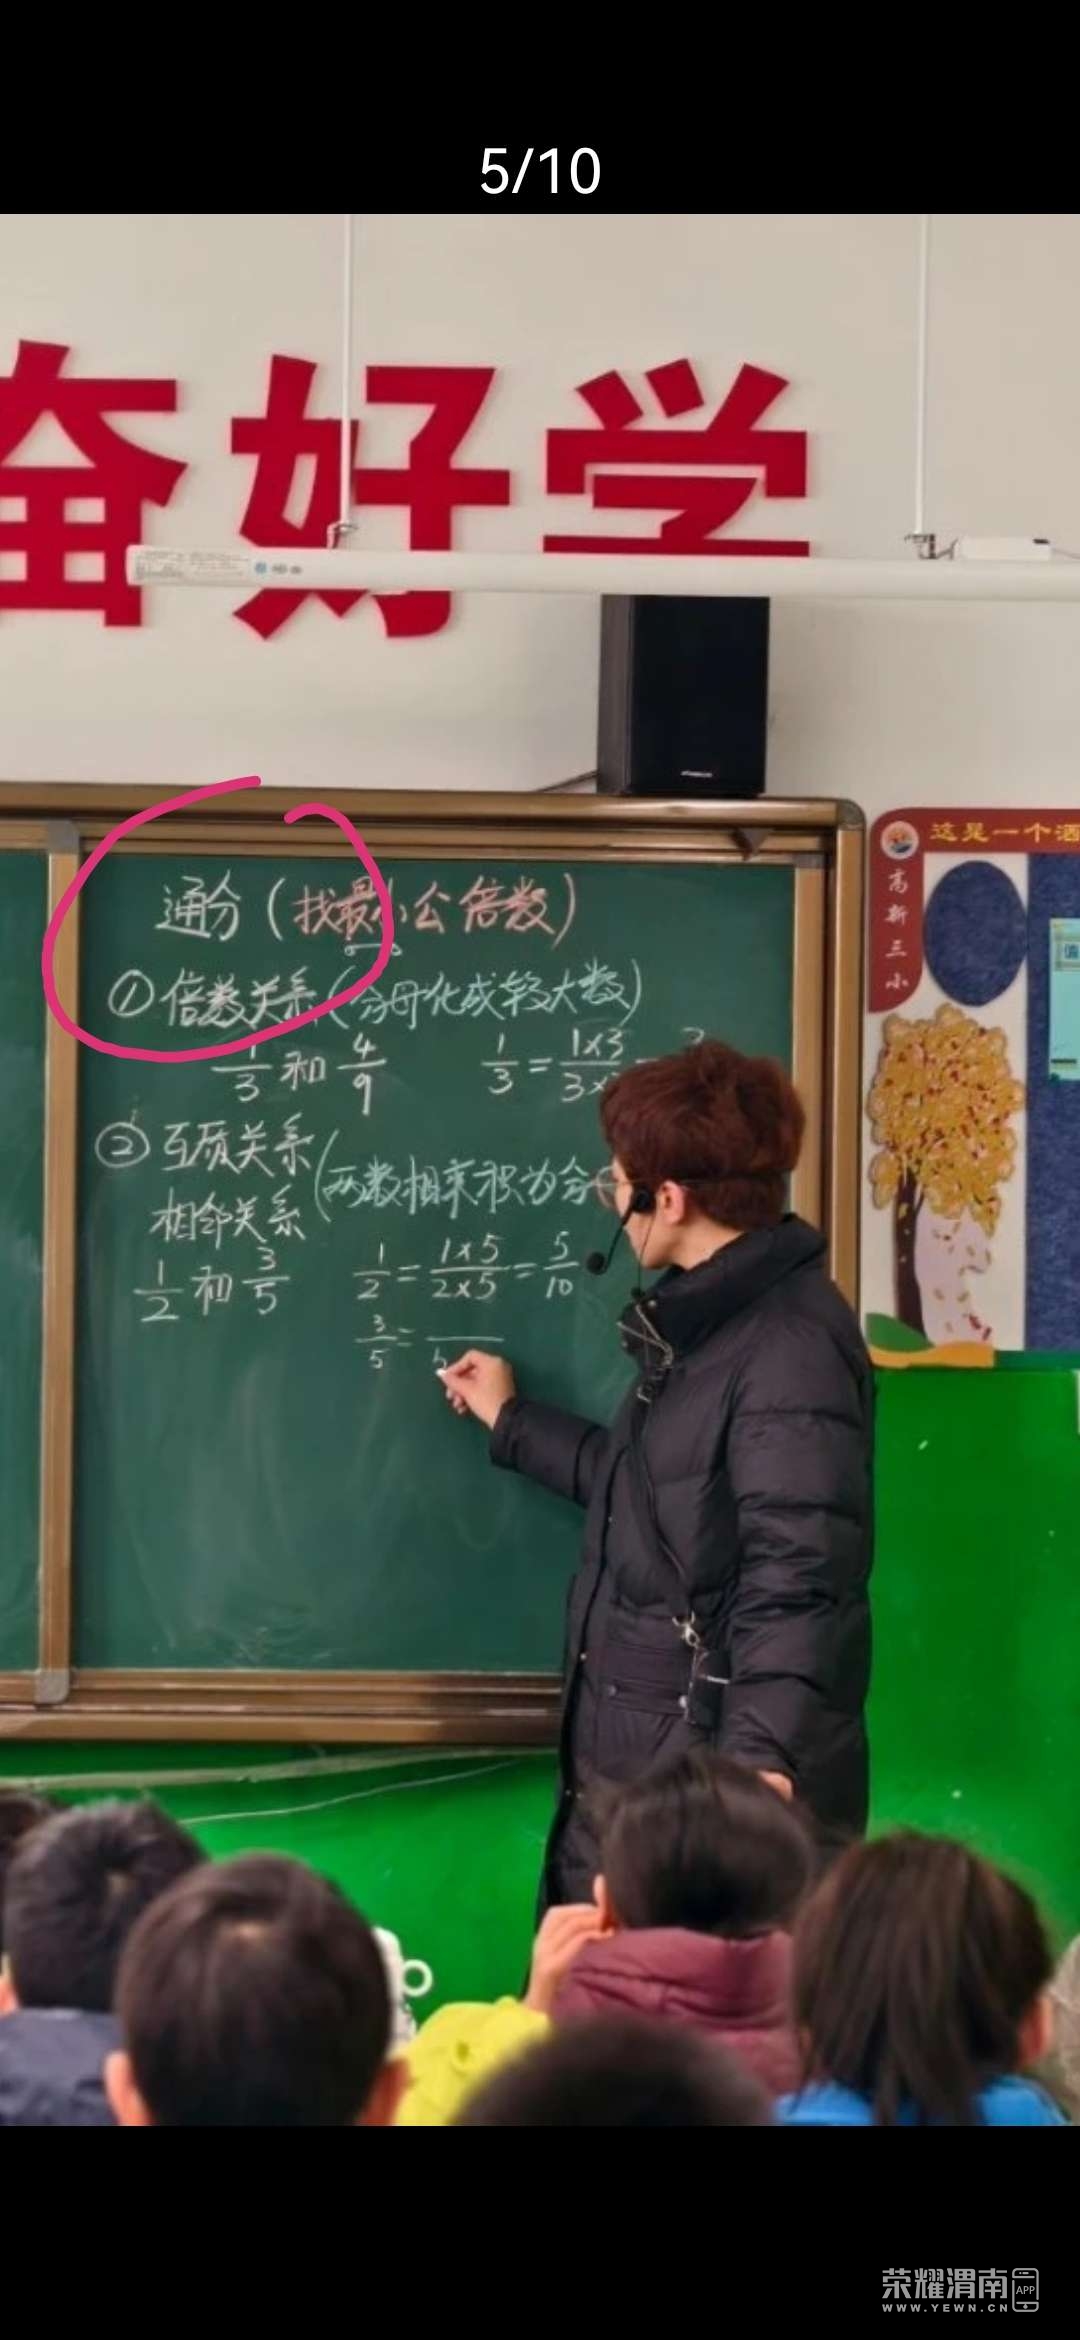 5/10
奋好学
这是一个洒
高新三小
通分（找最小公倍数）
①倍数关系（分母化成较大数）
1/3 和 4/9 1/3 = 1×3/3×
②互质关系
相邻关系
（两数相乘积为分
1/2 和 3/5 1/2 = 1×5/2×5 = 5/10
3/5 =
荣耀渭南 APP
WWW.YEWN.CN